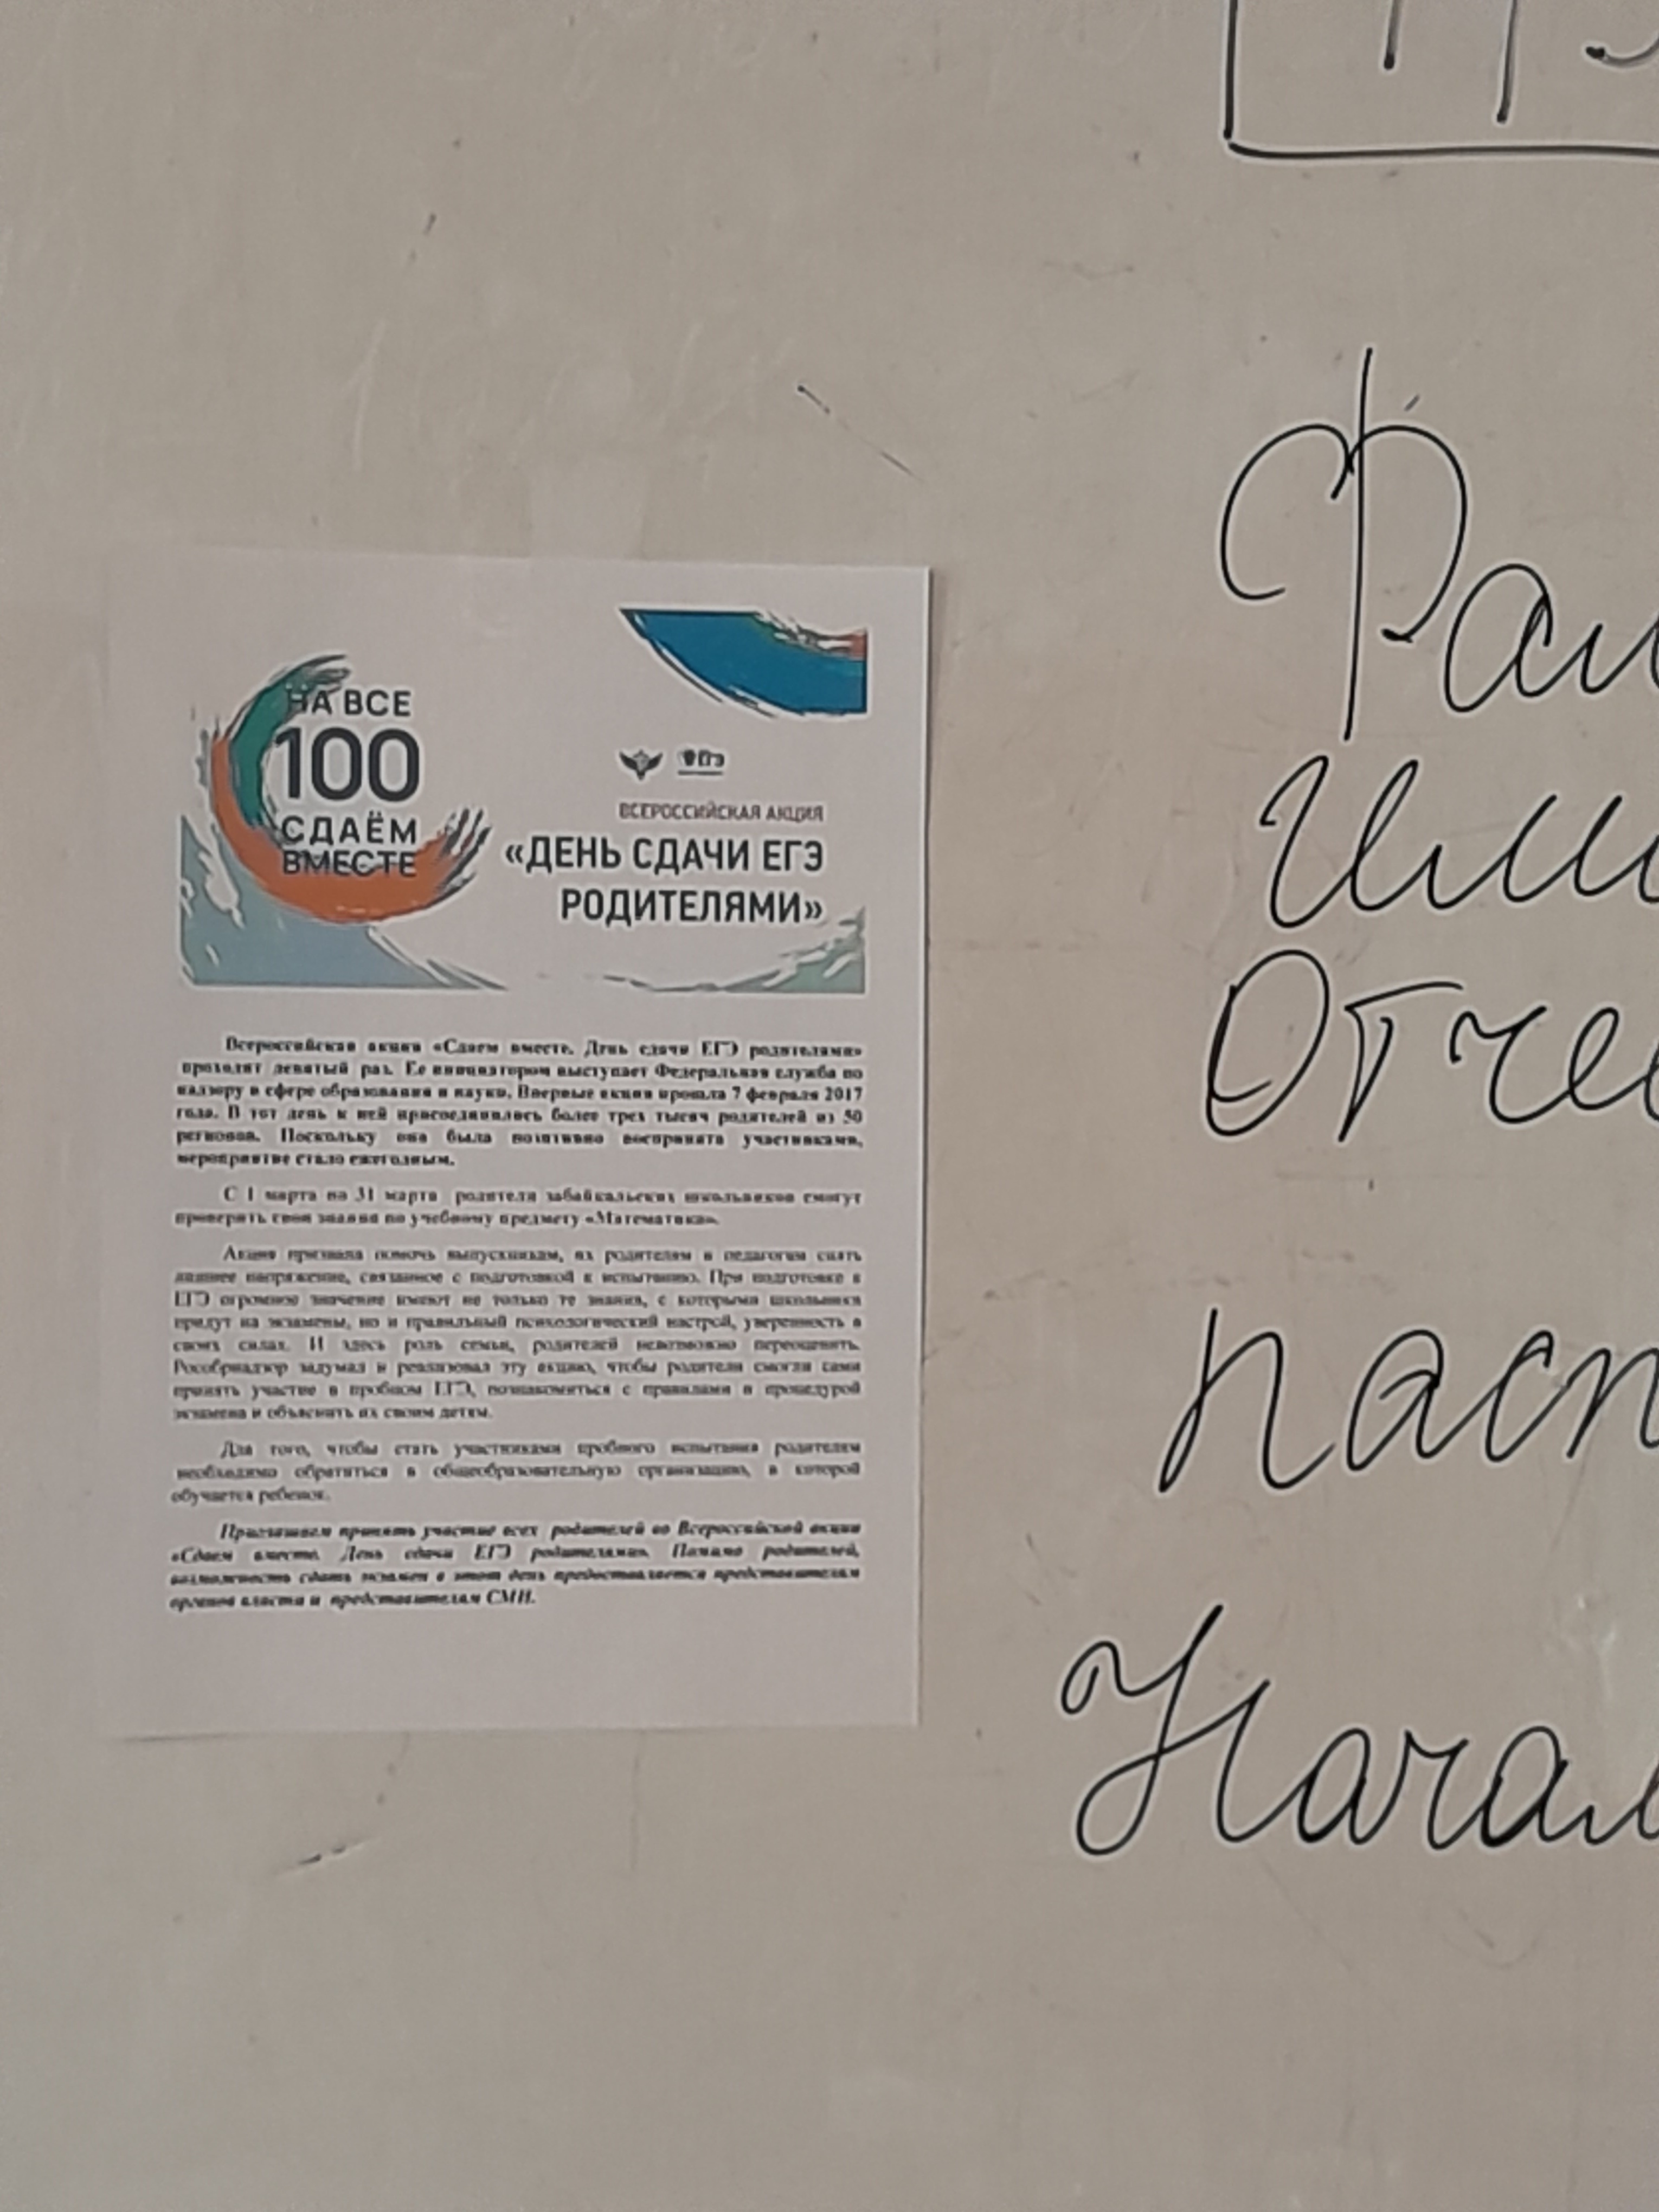 НА ВСЕ
100
СДАЁМ
ВМЕСТЕ
ЕГЭ
ВСЕРОССИЙСКАЯ АКЦИЯ
«ДЕНЬ СДАЧИ ЕГЭ
РОДИТЕЛЯМИ»
Всероссийская акция «Сдаем вместе. День сдачи ЕГЭ родителями»
проходит девятый раз. Ее инициатором выступает Федеральная служба по
надзору в сфере образования и науки. Впервые акция прошла 7 февраля 2017
года. В тот день к ней присоединились более трех тысяч родителей из 50
регионов. Поскольку она была позитивно воспринята участниками,
мероприятие стало ежегодным.
С 1 марта по 31 марта родители забайкальских школьников смогут
проверить свои знания по учебному предмету «Математика».
Акция призвана помочь выпускникам, их родителям и педагогам снять
лишнее напряжение, связанное с подготовкой к испытанию. При подготовке к
ЕГЭ огромное значение имеют не только те знания, с которыми школьники
придут на экзамены, но и правильный психологический настрой, уверенность в
своих силах. И здесь роль семьи, родителей невозможно переоценить.
Рособрнадзор задумал и реализовал эту акцию, чтобы родители смогли сами
принять участие в пробном ЕГЭ, познакомиться с правилами и процедурой
экзамена и объяснить их своим детям.
Для того, чтобы стать участниками пробного испытания родителям
необходимо обратиться в общеобразовательную организацию, в которой
обучается ребенок.
Приглашаем принять участие всех родителей во Всероссийской акции
«Сдаем вместе. День сдачи ЕГЭ родителями». Помимо родителей,
возможность сдать экзамен в этот день предоставляется представителям
органов власти и представителям СМИ.
Фам
Имя
Отче
пасп
Начал